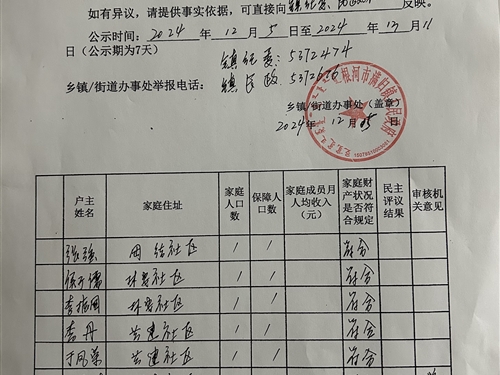 如有异议，请提供事实依据，可直接向镇纪委、民政 反映。
公示时间：2024 年 12 月 5 日至 2024 年 12 月 11
日（公示期为7天）
镇纪委：5372474
乡镇/街道办事处举报电话：镇民政：5372656
根河市满归镇人民政府
乡镇/街道办事处（盖章）
2024年12月05日
户主姓名 家庭住址 家庭人口数 保障人口数 家庭成员月人均收入（元） 家庭财产状况是否符合规定 民主评议结果 审核机关意见
张强 团结社区 1 1 符合
环岛社区 1 1 符合
李 环岛社区 1 1 符合
李丹 共建社区 1 1 符合
于凤荣 共建社区 1 1 符合